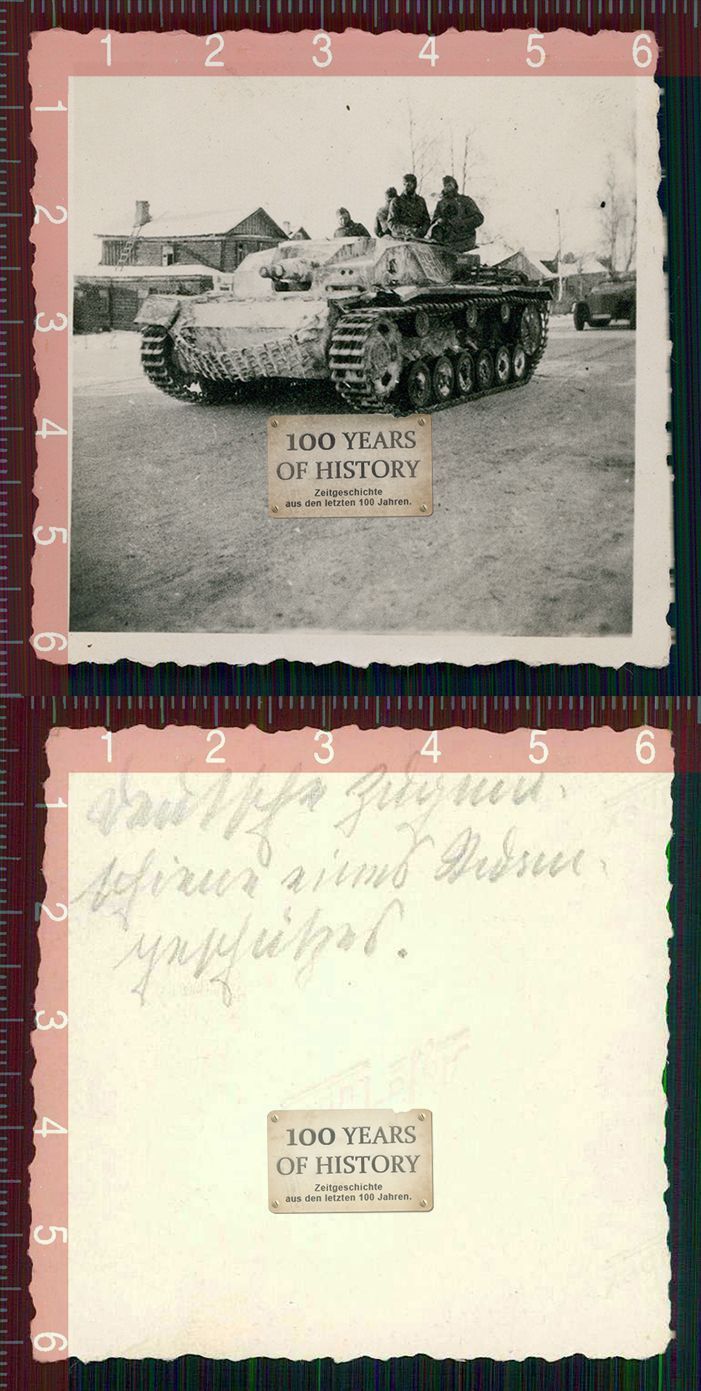 1 2 3 4 5 6
1
2
3
4
5
6
100 YEARS
OF HISTORY
Zeitgeschichte
aus den letzten 100 Jahren.
1 2 3 4 5 6
1
2
3
4
5
6
Deutsche
schiene eines Sturm-
geschützes.
100 YEARS
OF HISTORY
Zeitgeschichte
aus den letzten 100 Jahren.